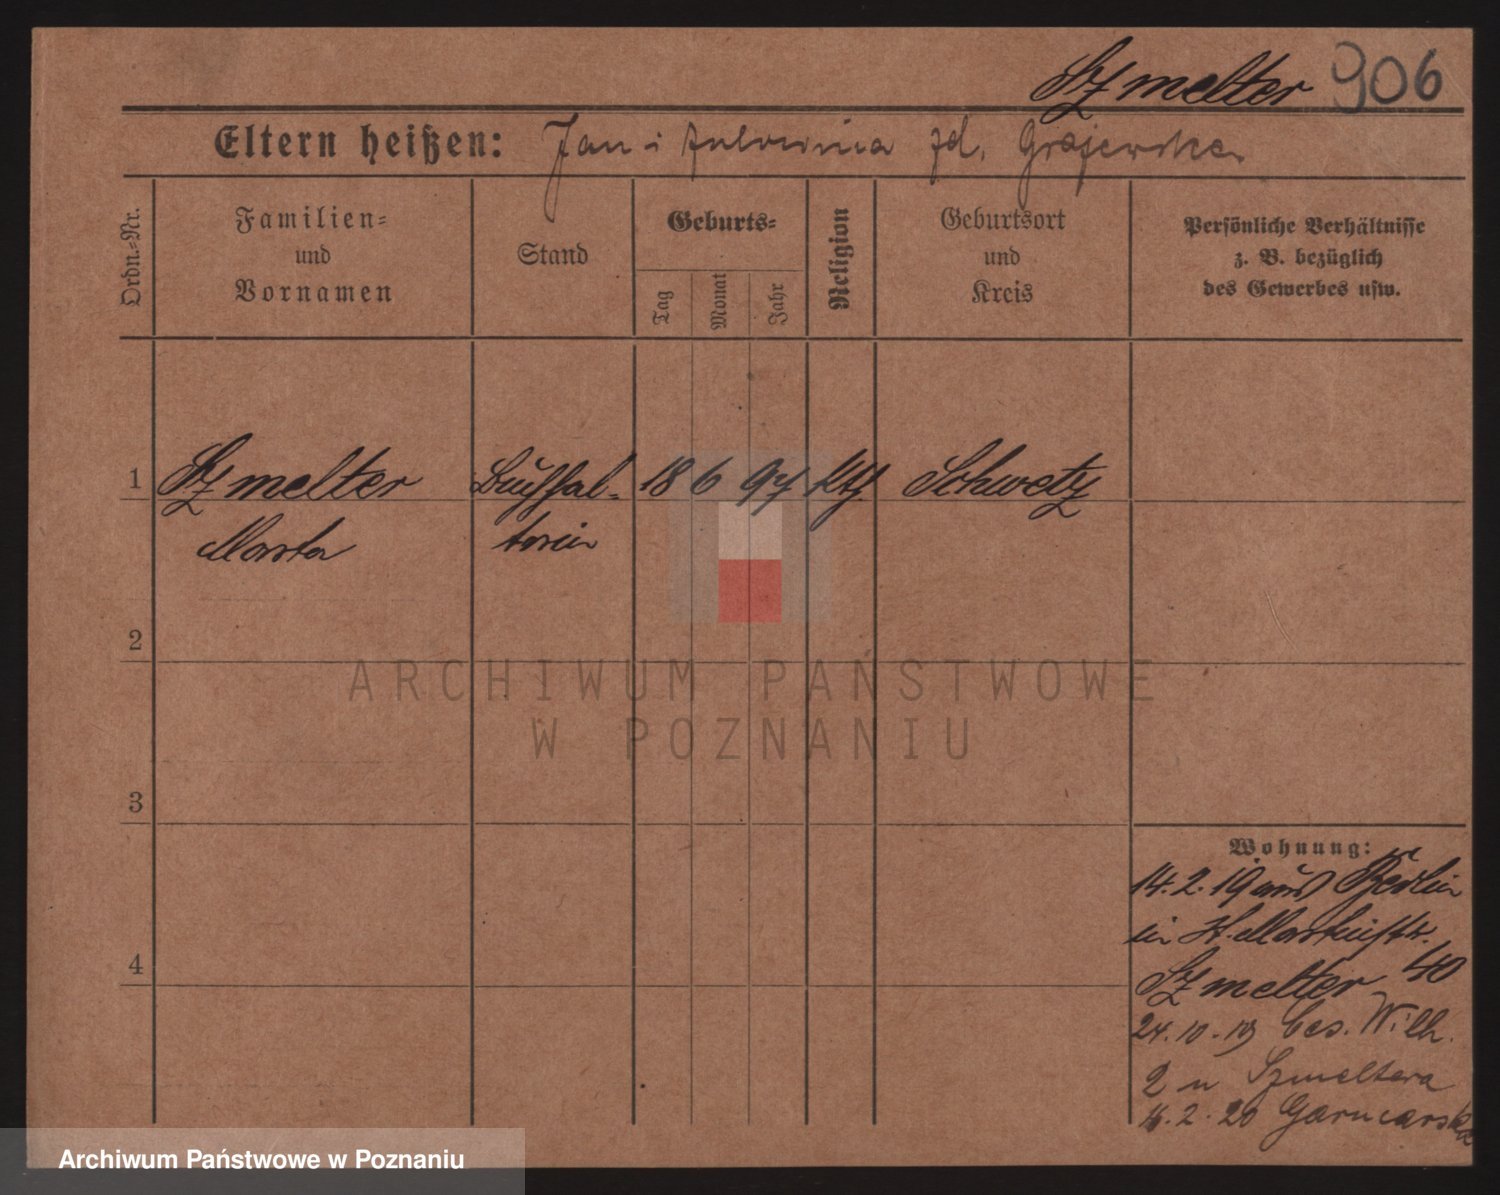 Szmelter 906
Eltern heißen: Jan i Antonina zd. Grajewska
Ordn.=Nr.
Familien=
und
Vornamen
Stand
Geburts=
Tag
Monat
Jahr
Religion
Geburtsort
und
Kreis
Persönliche Verhältnisse
z. B. bezüglich
des Gewerbes usw.
1 Szmelter Buchhal- 18 6 97 kth Schwetz
Marta terin
2
3
4
Wohnung:
14.2.19 aus Berlin
in St. Martinstr.
Szmelter 40
24.10.19 Ces. Wilh.
2 u Szmeltera
4.2.20 Garncarska
ARCHIWUM PAŃSTWOWE
W POZNANIU
Archiwum Państwowe w Poznaniu